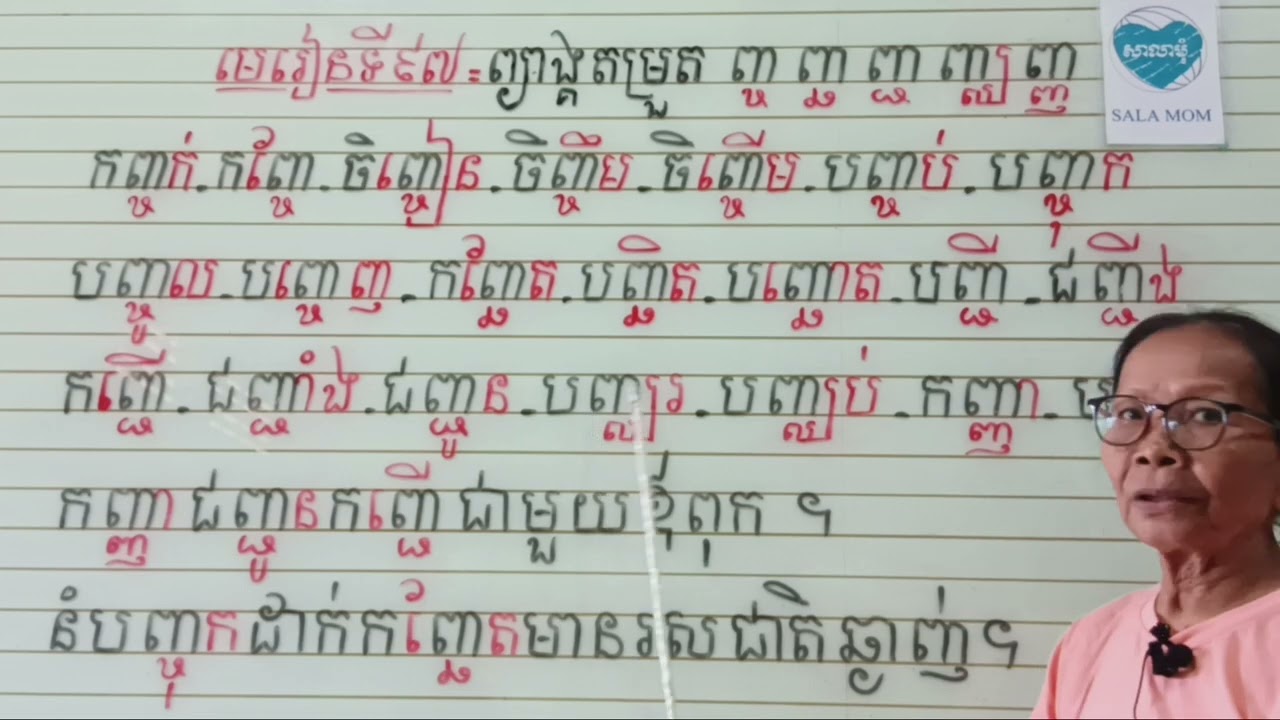 មេរៀនទី៩៧=ព្យាង្គតម្រួត ញ្ច ញ្ឆ ញ្ជ ញ្ឈ ញ្ញ
សាលាមុំ
SALA MOM
កញ្ចក់.កញ្ចែ.ចិញ្ចៀន.ចិញ្ចឹម.ចិញ្ចើម.បញ្ចប់.បញ្ចុក
បញ្ចូល.បញ្ចេញ.កញ្ឆែត.បញ្ឆិត.បញ្ឆោត.បញ្ជី.ជញ្ជីង
កញ្ជើ.ជញ្ជាំង.ជញ្ជូន.បញ្ឈរ.បញ្ឈប់.កញ្ញា.
កញ្ញាជញ្ជូនកញ្ជើជាមួយឪពុក ។
នំបញ្ចុកដាក់កញ្ឆែតមានរសជាតិឆ្ងាញ់។